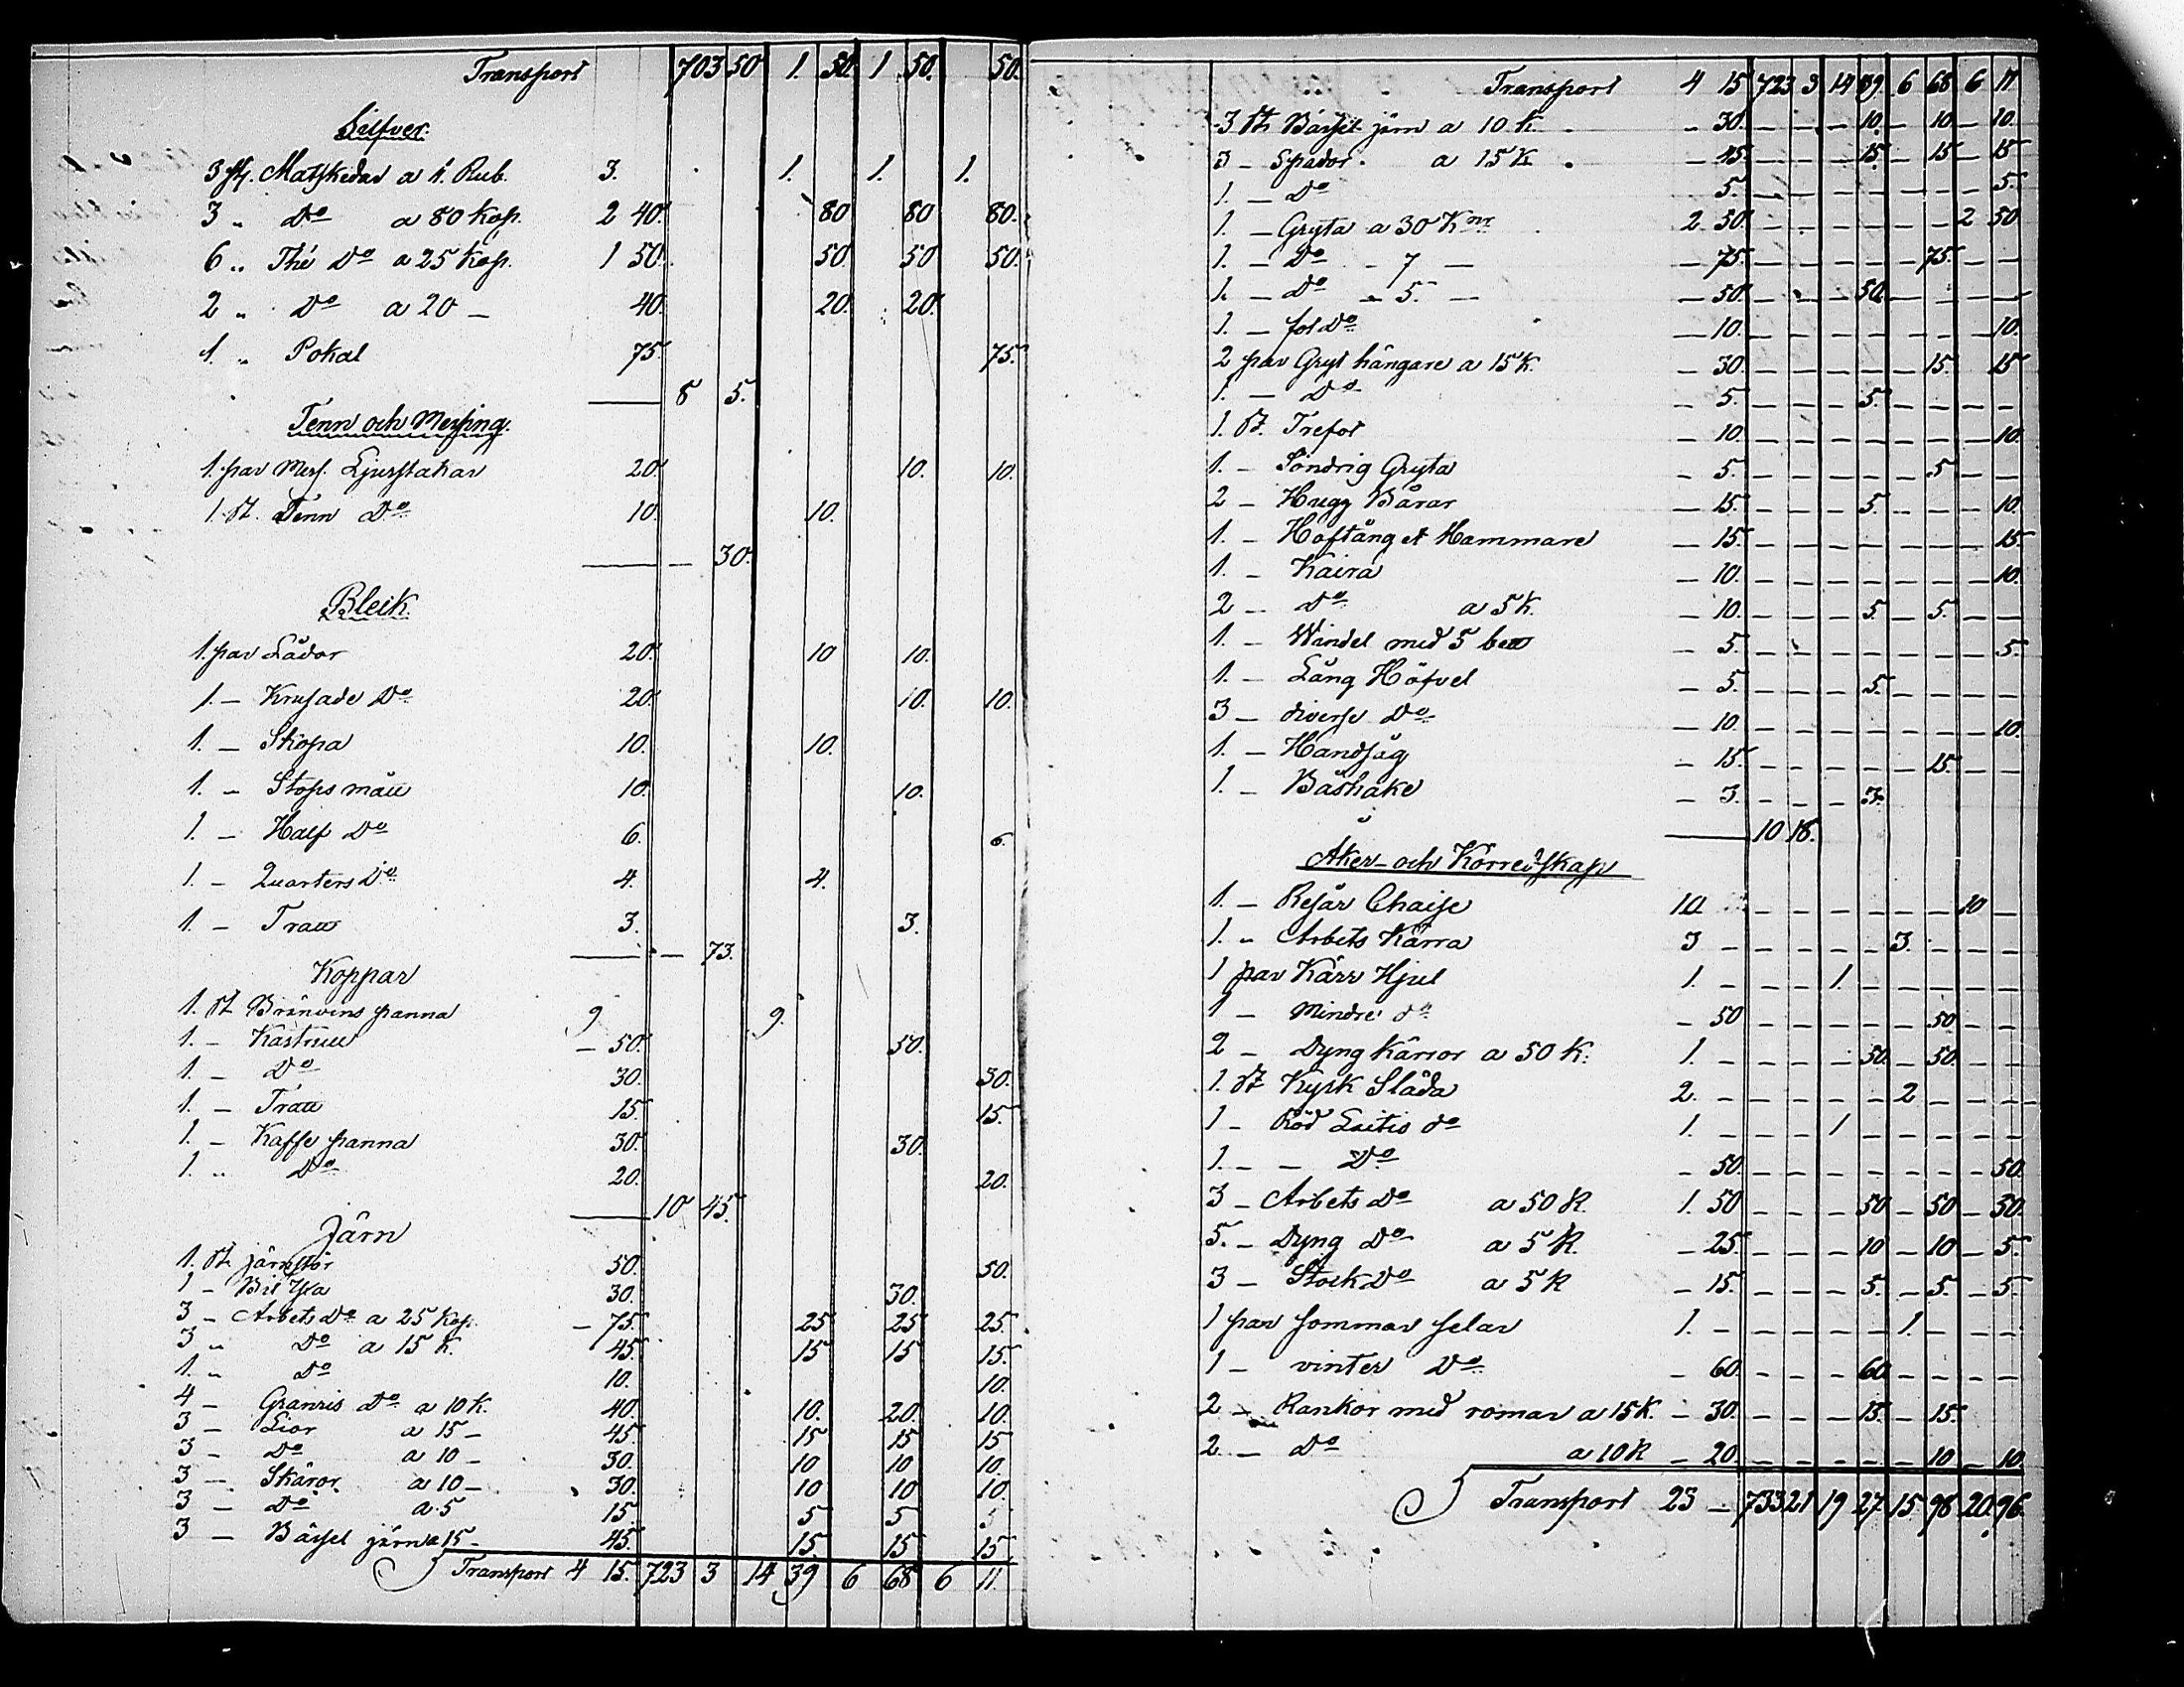 Transport 703 50 1. 50. 1 50. 50.
Silfver.
3 st. Matskedar a 1. Rub. 3. 1. 1. 1.
3 " Do a 80 Kop. 2 40. 80 80 80.
6 " Thé Do a 25 Kop. 1 50. 50. 50 50.
2 " Do a 20 — 40. 20. 20.
1 " Pokal 75. 75.
— 8 5.
Tenn och Messing.
1. par Mess. Ljusstakar 20. 10. 10.
1. St. Tenn Do 10. 10.
— — 30.
Bleik.
1. par Lådor 20. 10 10.
1. — Krusade Do 20. 10. 10.
1. — Skopa 10. 10.
1. — Stops mått 10. 10.
1. — Half Do 6. 6.
1. — Quarters Do 4. 4.
1. — Tratt 3. 3.
— — 73.
Koppar
1. St Bränvins panna 9 9.
1. — Kastrull — 50. 50.
1. — Do 30. 30.
1. — Tratt 15. 15.
1. — Kaffe panna 30. 30.
1. " Do 20. 20.
— 10 45.
Järn
1. St. järnstör 50. 50.
1 — Bil Yxa 30. 30.
3 — Arbets Do a 25 Kop. — 75. 25 25 25.
3 " Do a 15 K. 45. 15 15 15.
1. " Do 10. 10.
4 — Granris Do a 10 K. 40. 10. 20. 10.
3 — Lior a 15 — 45. 15 15 15
3 — Do a 10 — 30. 10 10 10.
3 — Skäror a 10 — 30. 10 10 10.
3 — Do a 5 15. 5 5 5
3 — Bässel järn a 15 — 45. 15. 15 15
Transport 4 15. 723 3 14 39 6 68 6 11.
Transport 4 15 723 3 14 39. 6 68 6 11
3 St Bässel järn a 10 K. — 30. — — — 10. — 10 — 10.
3 — Spador a 15 K — 45. — — — 15. — 15 — 15
1. — Do 5. — — — — — — — 5.
1. — Gryta a 30 Knr 2 50. — — — — — — 2 50
1. — Do — 7 — — 75. — — — — — 75. — —
1. — Do — 5. — — 50. — — — 50. — — — —
1. — fot Do — 10. — — — — — — — 10.
2 par Gryt hängare a 15 K. — 30. — — — — — 15. 15
1. — Do — 5. — — — 5. — — — —
1. St. Trefot — 10. — — — — — — — 10.
1. — Söndrig Gryta — 5. — — — — — 5 — —
2 — Hugg Bårar — 15. — — — 5. — — — 10.
1. — Hoftång et Hammare — 15. — — — — — — — 15.
1. — Kaira — 10. — — — — — — — 10.
2 — Do a 5 K. — 10. — — — 5 — 5. — —
1. — Windel med 5 bett — 5. — — — — — — — 5.
1. — Lång Höfvel — 5. — — — 5. — — — —
3 — diverse Do — 10. — — — — — — — 10.
1. — Handsåg — 15. — — — — — 15. — —
1. — Båshake — 3. — — — 3.
— 10 18.
Åker- och Körredskap
1. — Resår Chaise 10 — — — — — — 10 —
1. " Arbets Kärra 3 — — — — — 3. — — —
1 par Kärr Hjul 1. — — — 1. — — — — —
1 — Mindre do — 50 — — — — — 50 — —
2 — Dyng Kärror a 50 K. 1. — — — — 50. — 50. — —
1. St Kyrk Släda 2. — — — — — 2 — — —
1 — Röd Laitio do 1. — — — 1 — — — — —
1. — — Do — 50. — — — — — — — 50.
3 — Arbets Do a 50 K. 1. 50 — — — 50 — 50 — 50.
5. — Dyng Do a 5 K. — 25. — — — 10 — 10 — 5.
3 — Stock Do a 5 K — 15. — — — 5. — 5. — 5.
1 par sommar selar 1. — — — — — 1. — — —
1 — vinter Do — 60. — — — 60 — — — —
2 — Rankor med romar a 15 K. — 30. — — — 15. — 15.
2. — Do a 10 K — 20. — — — — — 10 — 10
Transport 23 — 733 21 19 27 15 98 20. 96.